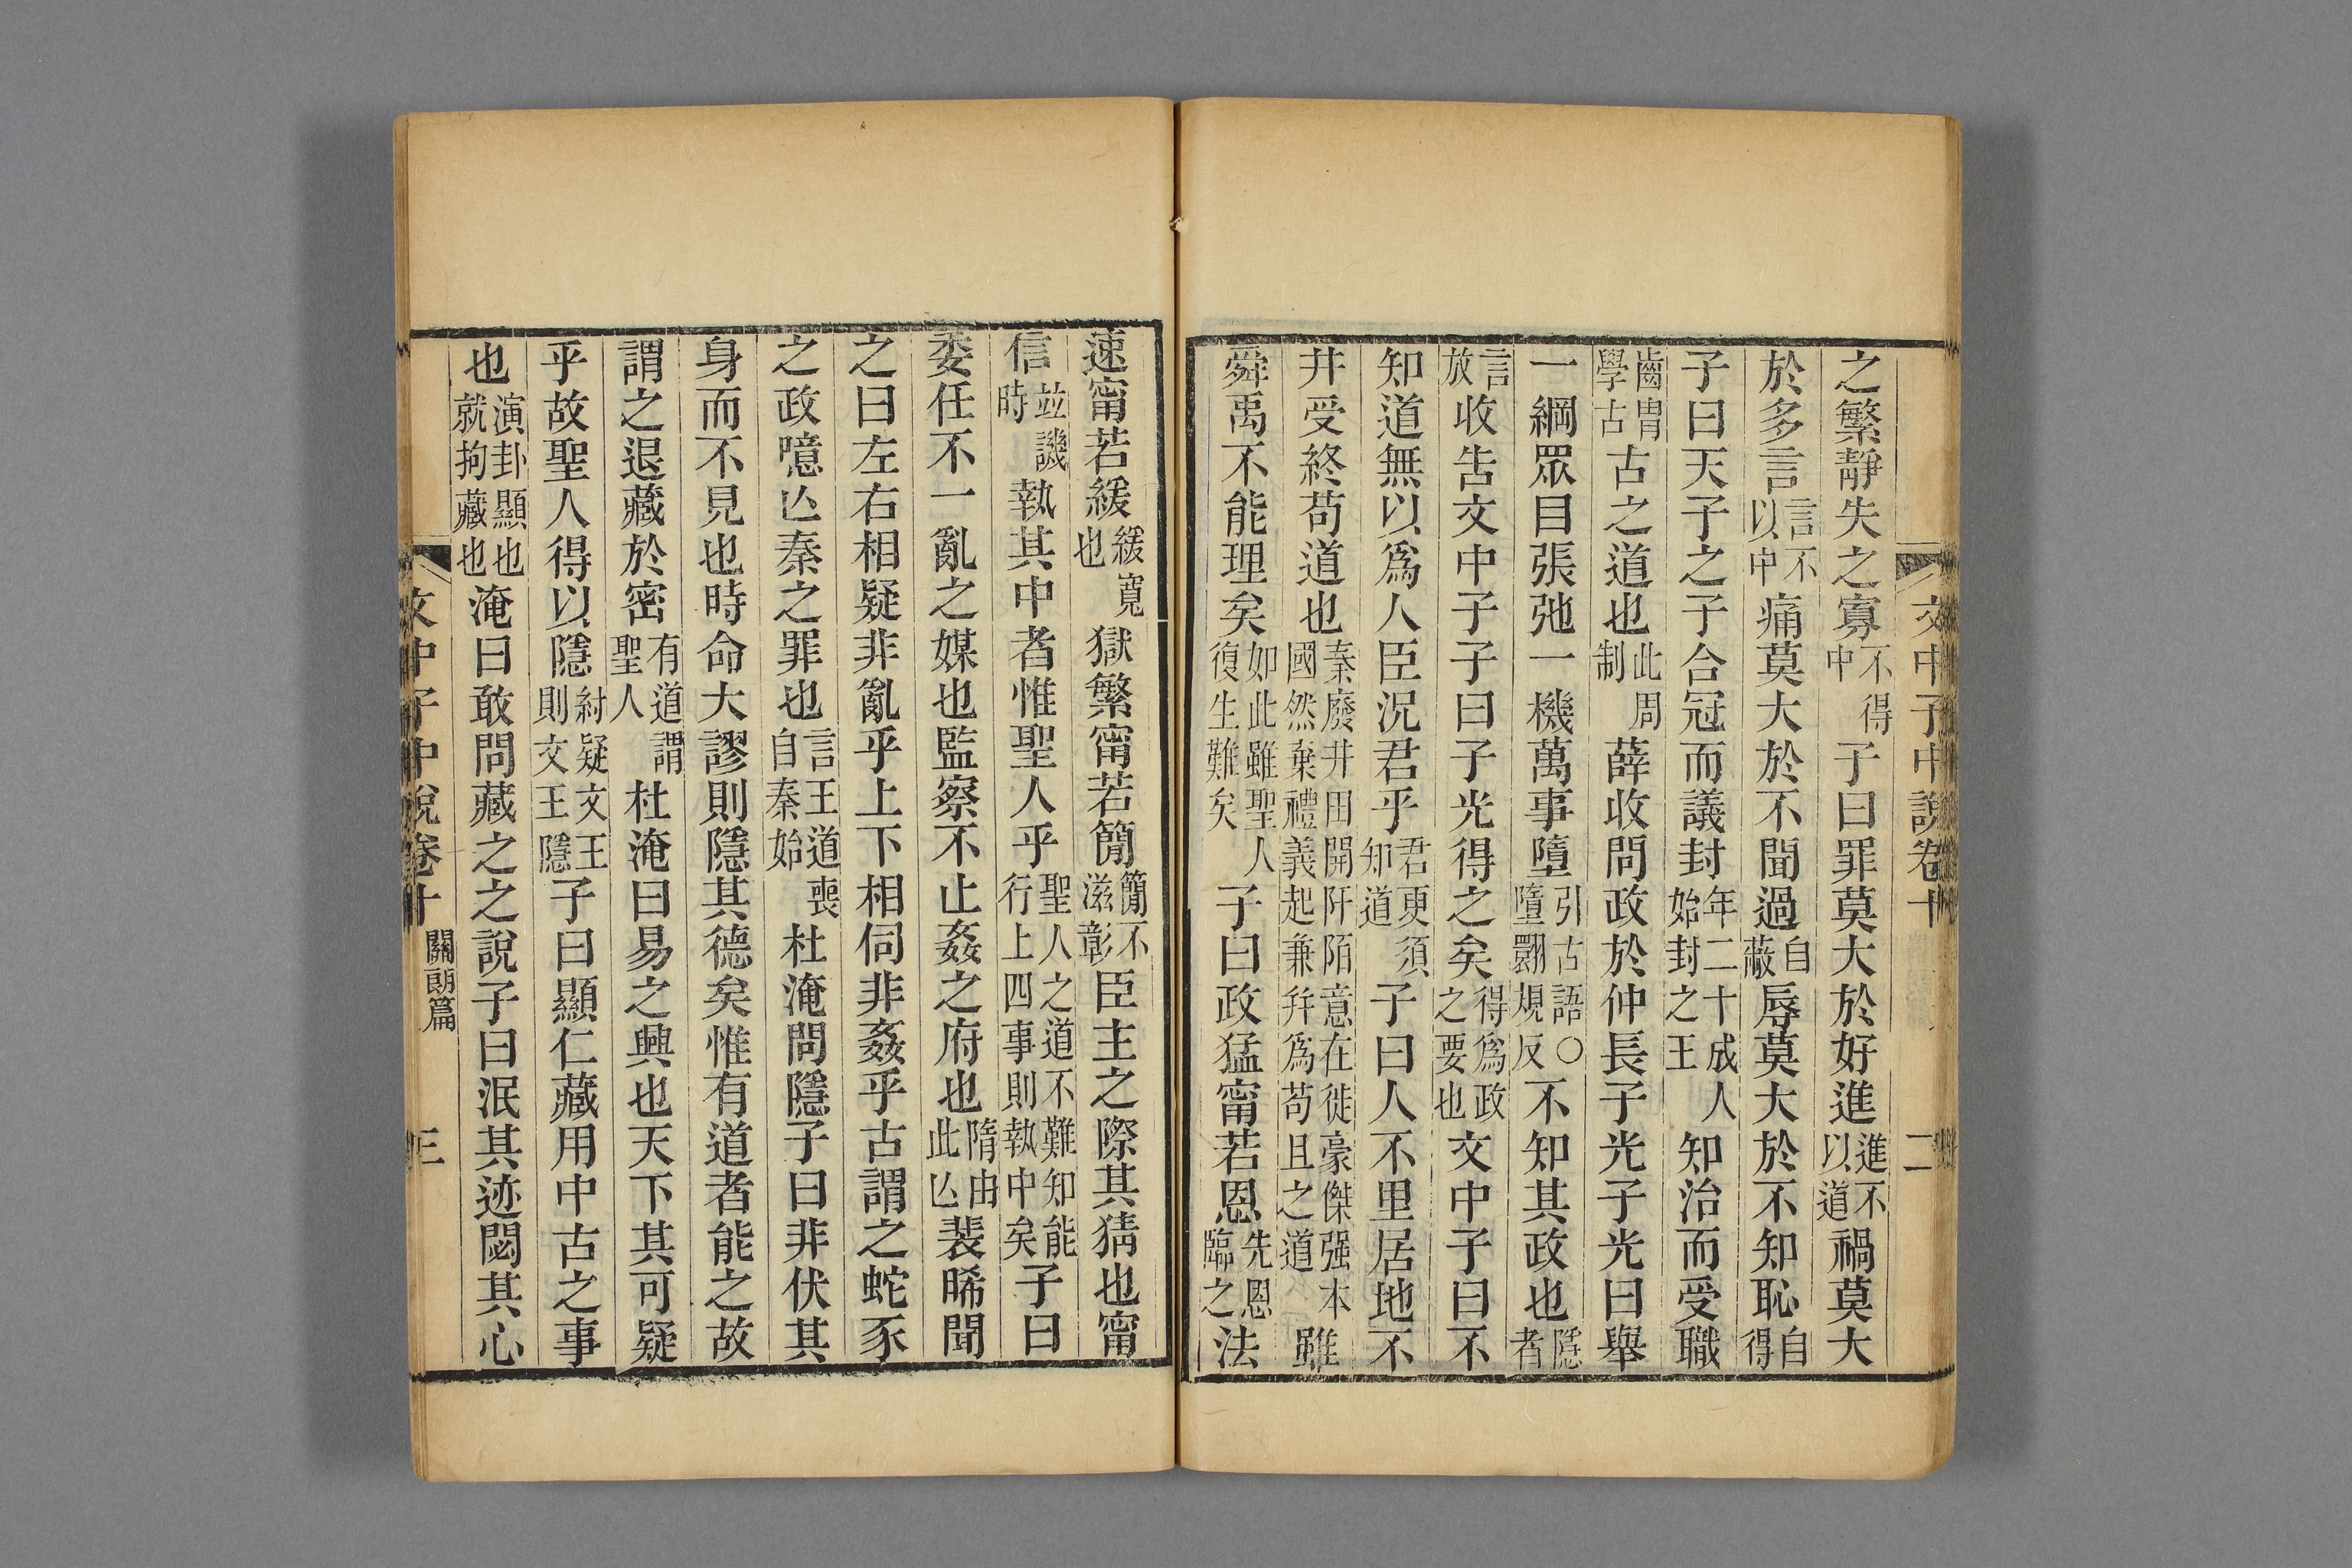 文中子中說卷十 二
之繁靜失之寡不得中子曰罪莫大於好進進不以道禍莫大
於多言言不以中痛莫大於不聞過自蔽辱莫大於不知恥自得
子曰天子之子合冠而議封年二十成人始封之王知治而受職
齒冑學古古之道也此周制薛收問政於仲長子光子光曰舉
一綱眾目張弛一機萬事墮引古語〇墮翾規反不知其政也隱者
言放收告文中子子曰子光得之矣得為政之要也文中子曰不
知道無以為人臣況君乎君更須知道子曰人不里居地不
井受終苟道也秦廢井田開阡陌意在徙豪傑强本國然棄禮義起兼并為苟且之道雖
舜禹不能理矣如此雖聖人復生難矣子曰政猛甯若恩先恩臨之法
速甯若緩緩寬也獄繁甯若簡簡不滋彰臣主之際其猜也甯
信並譏時執其中者惟聖人乎聖人之道不難知能行上四事則執中矣子曰
委任不一亂之媒也監察不止姦之府也隋由此亾裴晞聞
之曰左右相疑非亂乎上下相伺非姦乎古謂之蛇豕
之政噫亾秦之罪也言王道喪自秦始杜淹問隱子曰非伏其
身而不見也時命大謬則隱其德矣惟有道者能之故
謂之退藏於密有道謂聖人杜淹曰易之興也天下其可疑
乎故聖人得以隱紂疑文王則文王隱子曰顯仁藏用中古之事
也演卦顯也就拘藏也淹曰敢問藏之之說子曰泯其迹閟其心
文中子中說卷十 關朗篇 三